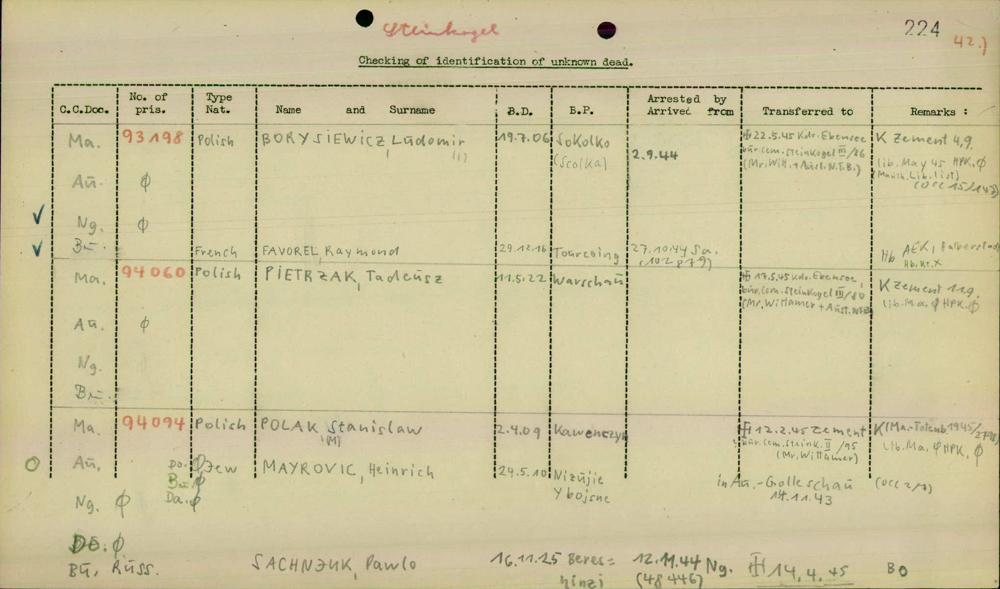 Steinkogel
224
42.)
Checking of identification of unknown dead.
C.C.Doc. No. of pris. Type Nat. Name and Surname B.D. B.P. Arrested by Arrived from Transferred to Remarks :
Ma. 93198 Polish BORYSIEWICZ, Ludomir 19.7.06 Sokolko (Scolka) 2.9.44 22.5.45 Kdr. Ebensee K Zement 4,9.
(1)
bür.Cem.Steinkogel III/86
(Mr.Witt.+Aust.N.T.B.)
lib. May 45 HPK. Ø
(Mauth. Lib. list)
(OCC 15/143)
Aū. Ø
Ng. Ø
Bū. French FAVOREL, Raymond 29.12.16 Tourcoing 27.10.44 Sa. (102879)
Hb. Kt. X
Ma. 94060 Polish PIETRZAK, Tadeusz 11.5.22 Warschaū 17.5.45 Kdr. Ebensee, K Zement
bür.Com.Steinkogel III/80
(Mr. Wittamer + Aust.
lib. Ma. Ø HPK. Ø
Aū. Ø
Ng.
Bū.
Ma. 94094 Polish POLAK, Stanislaw 2.4.09 Kawenczyn 12.2.45 Zement K (Ma.-Totenb. 1945/
(M)
bür.Cem.Steink. II/95
(Mr. Wittamer)
Lib. Ma. Ø HPK. Ø
Aū. Do. Ø Jew MAYROVIC, Heinrich 24.5.10 Nizūjie Ybojsne in Aū.-Golleschaū 14.11.43 (OCC 2/7)
Bū. Ø
Da. Ø
Ng. Ø
Do. Ø
Bū. Rūss. SACHNJUK, Pawlo 16.11.25 Beres= hinzi 12.11.44 Ng. (48446) 14.4.45 B0